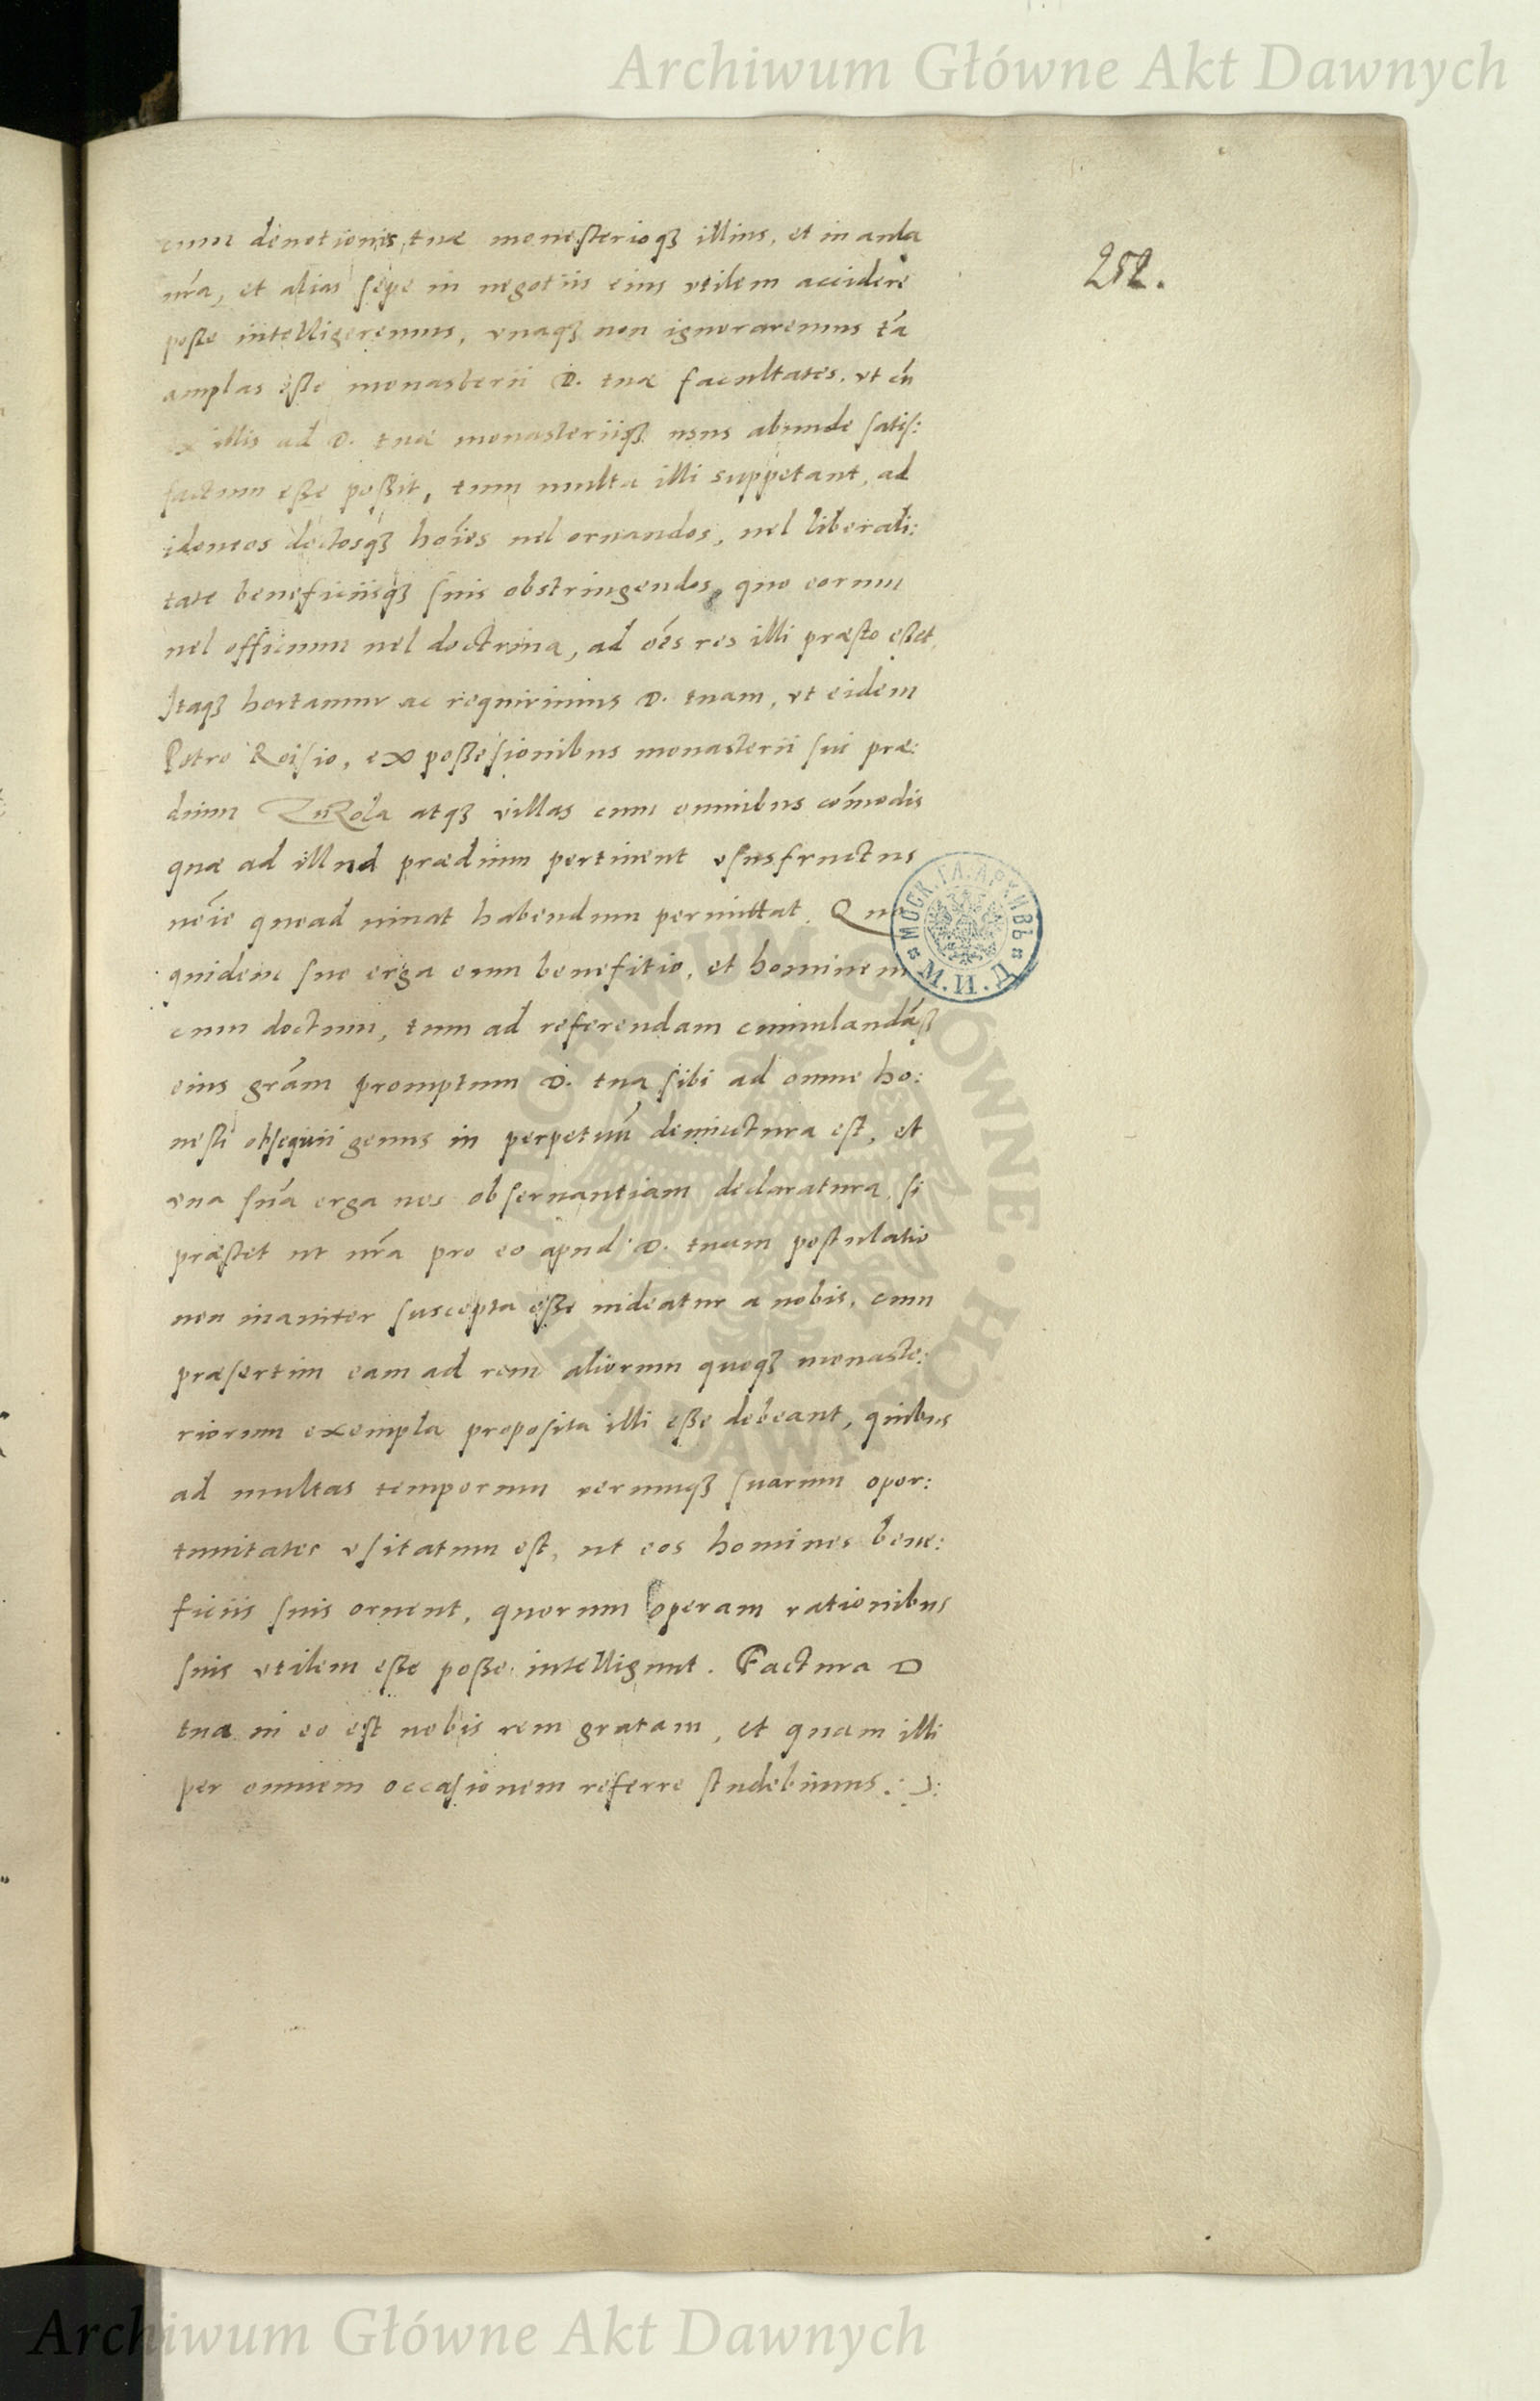 Archiwum Główne Akt Dawnych
252.
cum deuotionis tuæ monesterioqȝ illius, et in aula
nr̃a, et alias sępe in negotiis eius vtilem accidere
poße intelligeremus, vnaqȝ non ignoraremus tã
amplas eße monasterii D. tuæ facultates, vt cũ
ex illis ad D. tuæ monasteriiqȝ usus abunde satis:
factum eße poßit, tum multa illi suppetant, ad
idoneos doctosqȝ hoĩes uel ornandos, uel liberali:
tate beneficiisqȝ suis obstringendos, quo eorum
uel officium uel doctrina, ad oẽs res illi præsto eßet,
Itaqȝ hortamur ac requirimus D. tuam, vt eidem
Petro Roisio, ex poßesionibus monasterii sui præ:
dium atqȝ villas cum omnibus cõmodis
quæ ad illud prædium pertinent vsusfructus
noĩe quoad uiuat habendum permittat. Quo
quidem suo erga eum benefitio, et hominem
cum doctum, tum ad referendam cumulandãqȝ
eius grãm promptum D. tua sibi ad omne ho:
nesti obsequii genus in perpetuũ deuinctura est, et
vna suã erga nos obseruantiam declaratura, si
præstet ut nr̃a pro eo apud D. tuam postulatio
non inaniter suscepta eße uideatur a nobis, cum
præsertim eam ad rem aliorum quoqȝ monaste:
riorum exempla proposita illi eße debeant, quibus
ad multas temporum rerumqȝ suarum opor:
tunitates vsitatum est, ut eos homines bene:
ficiis suis ornent, quorum operam rationibus
suis vtilem eße poße intelligunt. Factura D
tua in eo est nobis rem gratam, et quam illi
per omnem occasionem referre studebimus.
МОСК. ГЛ. АРХИВЪ М. И. Д.
ARCHIWUM GŁÓWNE AKT DAWNYCH
Archiwum Główne Akt Dawnych